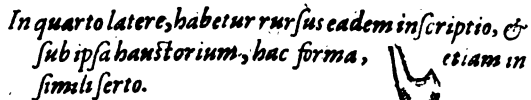 In quarto latere, habetur rurſus eadem inſcriptio, &
ſub ipſa hauſtorium, hac forma, etiam in
ſimili ſerto.